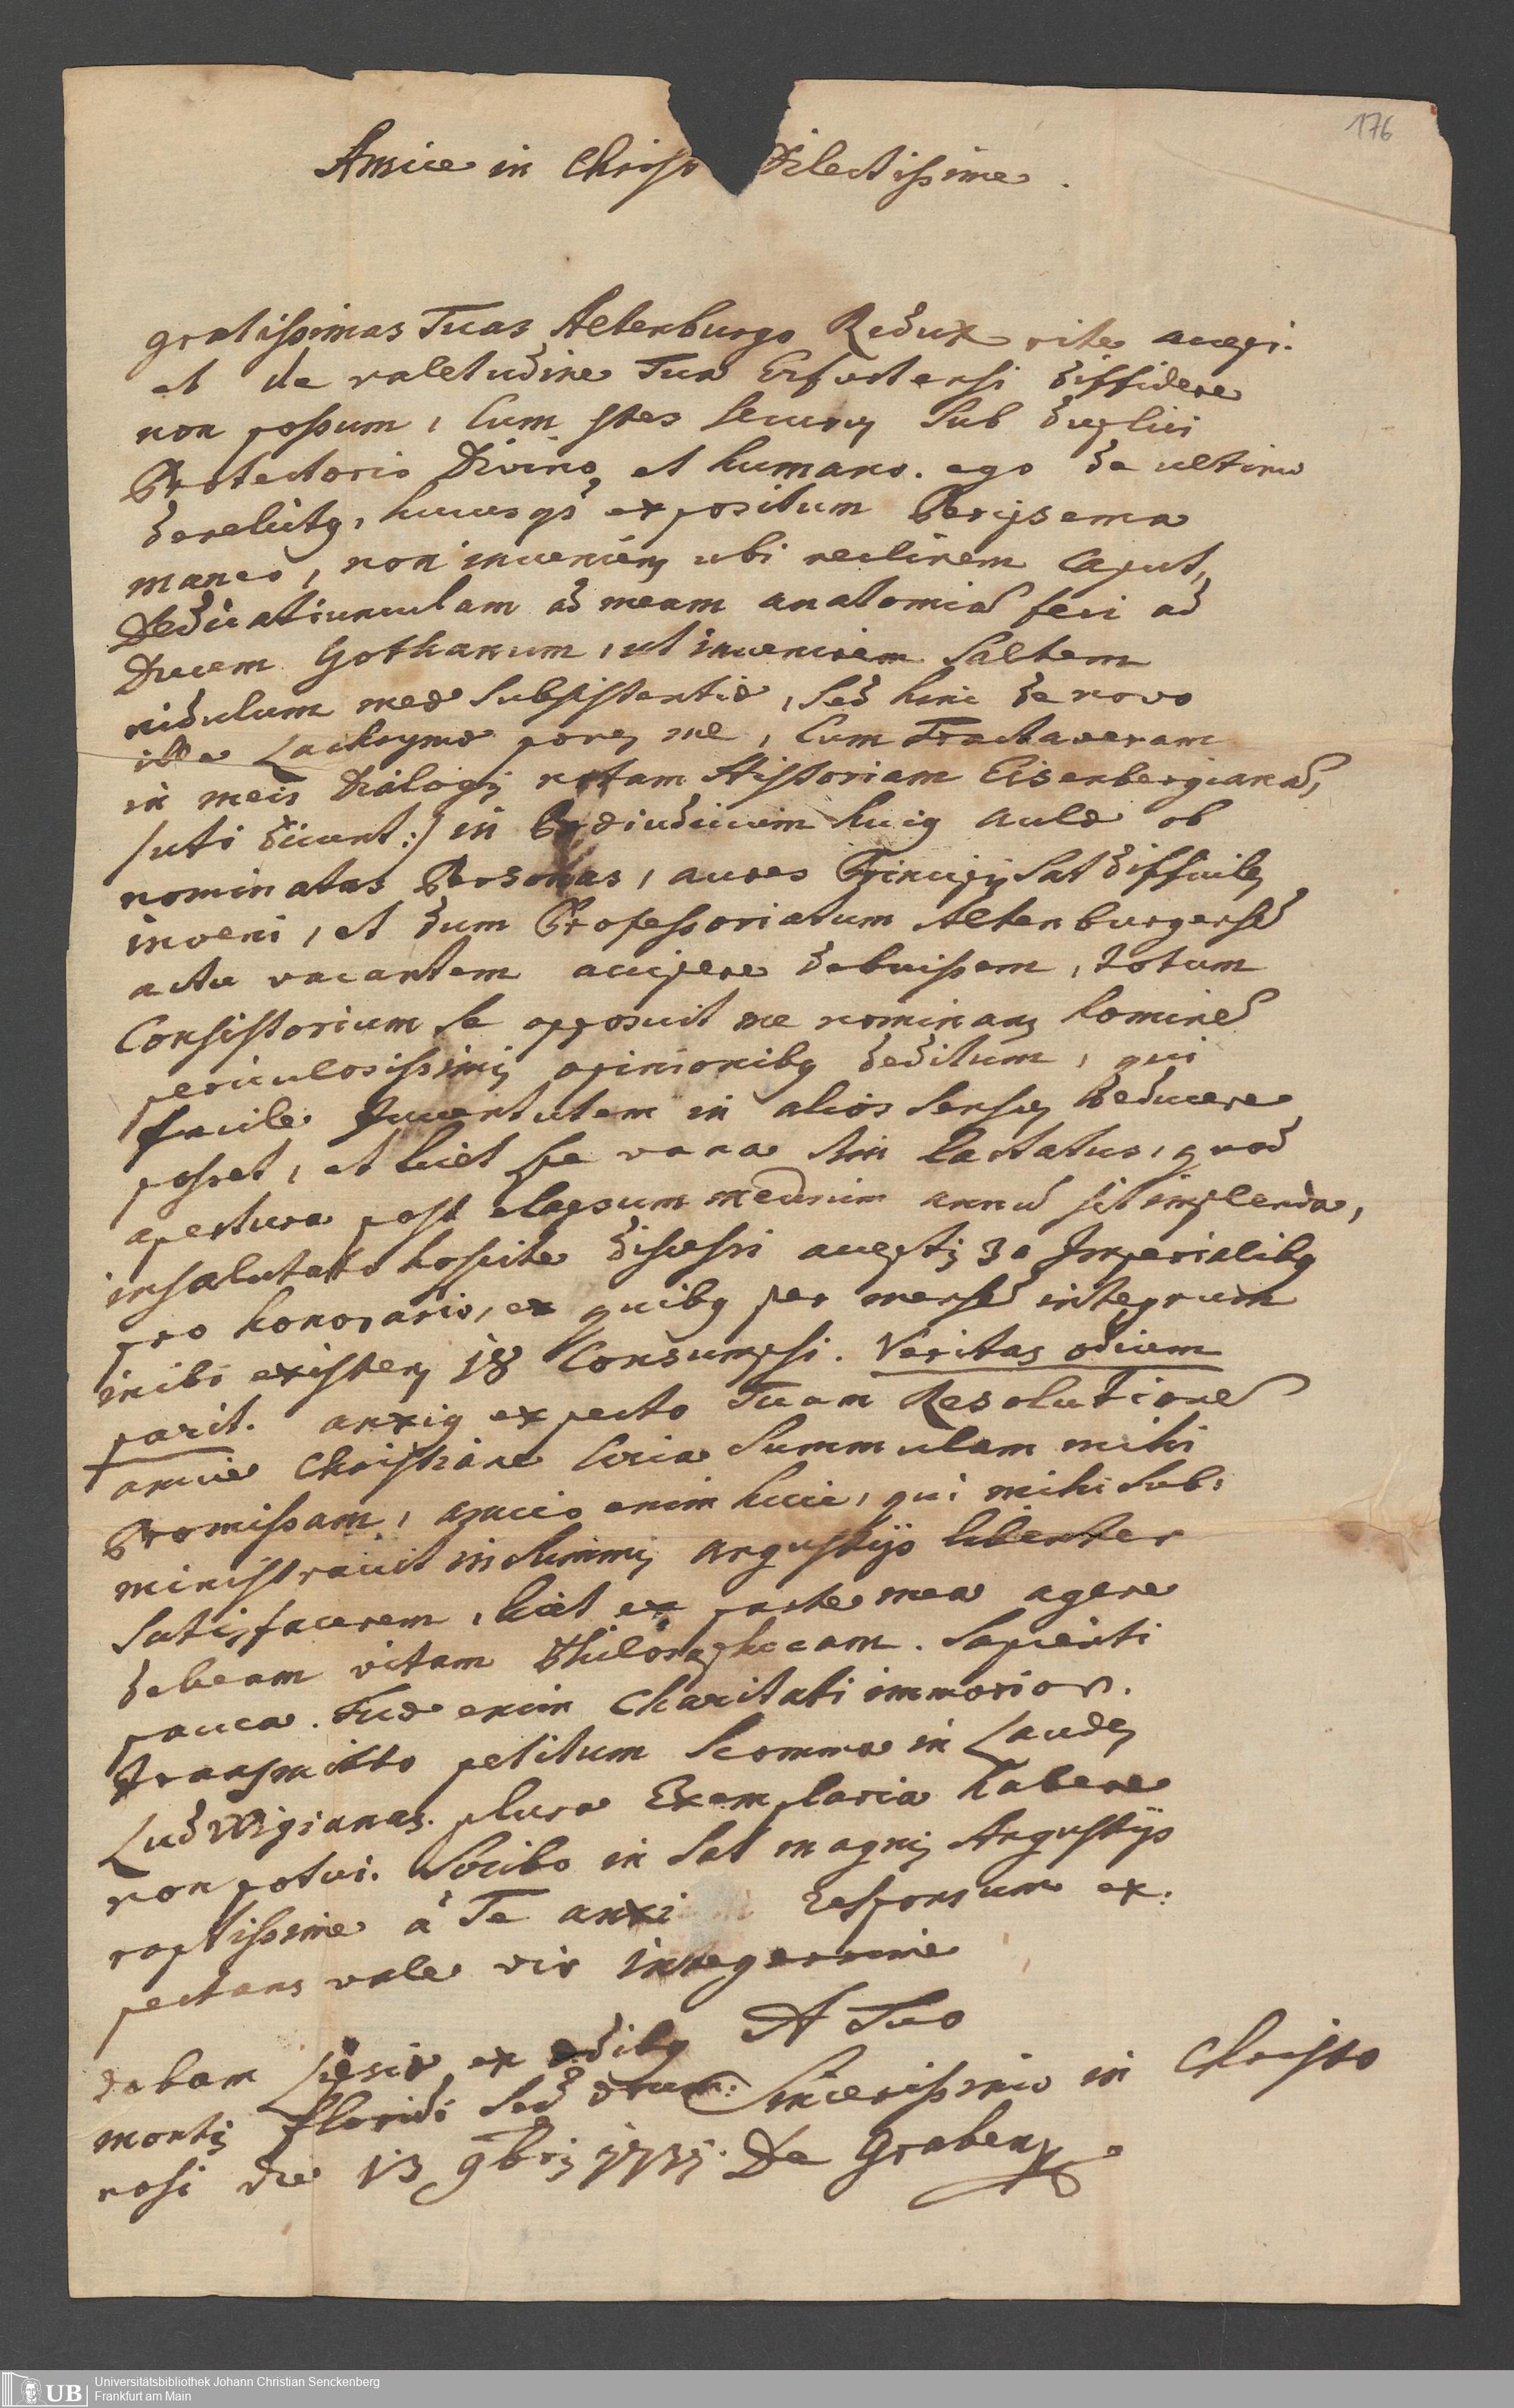 176
Amice in Christo Dilectissime.
gratissimas Tuas Altenburgo Redux rite accepi.
et de valetudine Tua Erfurtensi diffidere
non possum, cum stes securus sub duplici
Protectorio Divino et humano. ego de ultimo
derelictus, hucusque expositum Peripsema
maneo, non inveniens ubi reclinem caput,
Dedicatiunculam ad meam anatomiam feci ad
Ducem Gothanum, ut invenirem saltem
nidulum meae subsistentiae, sed hinc de novo
illae Lachrymae penes me, cum Tractaveram
in meis Dialogis notam Historiam Eisenbergianam,
/uti dicunt:/ in Praeiudicium huius aulae ob
nominatas Personas, aures Principis sat difficiles
inveni, et dum Professoriatum Altenburgensem
actu vacantem accipere debuissem, totum
Consistorium se opposuit me nominans hominem
periculosissimis opinionibus deditum, qui
facile Juventutem in alios sensus deducere
posset, et licet spe vana sim lactatus, quod
apertura post elapsum medium annum sit implenda,
insalutato hospite discessi acceptis 30 Imperialibus
pro honorario, ex quibus per mensem integrum
inibi existens 18 Consumpsi. Veritas odium
parit. anxius expecto Tuam Resolutionem
amice Christiane circa summulam mihi
Promissam, amico enim huic, qui mihi sub:
ministravit in summis angustijs libenter
satisfacerem, licet ex parte mea agere
debeam vitam Philosophicam. Sapienti
pauca. Tuae enim Charitati immorior.
Transmitto petitum Scomma in Laudes
Ludwigianas. plura Exemplaria habere
non potui. Scribo in sat magnis Angustijs
raptissime à Te anxi responsum ex:
pectans vale vir integerrime
A Tuo
dabam Lipsiae ex aedibus
Sincerissimo in Christo
montis floridi sed
nosi die 13 9bris De Grabens
Universitätsbibliothek Johann Christian Senckenberg
Frankfurt am Main
UB